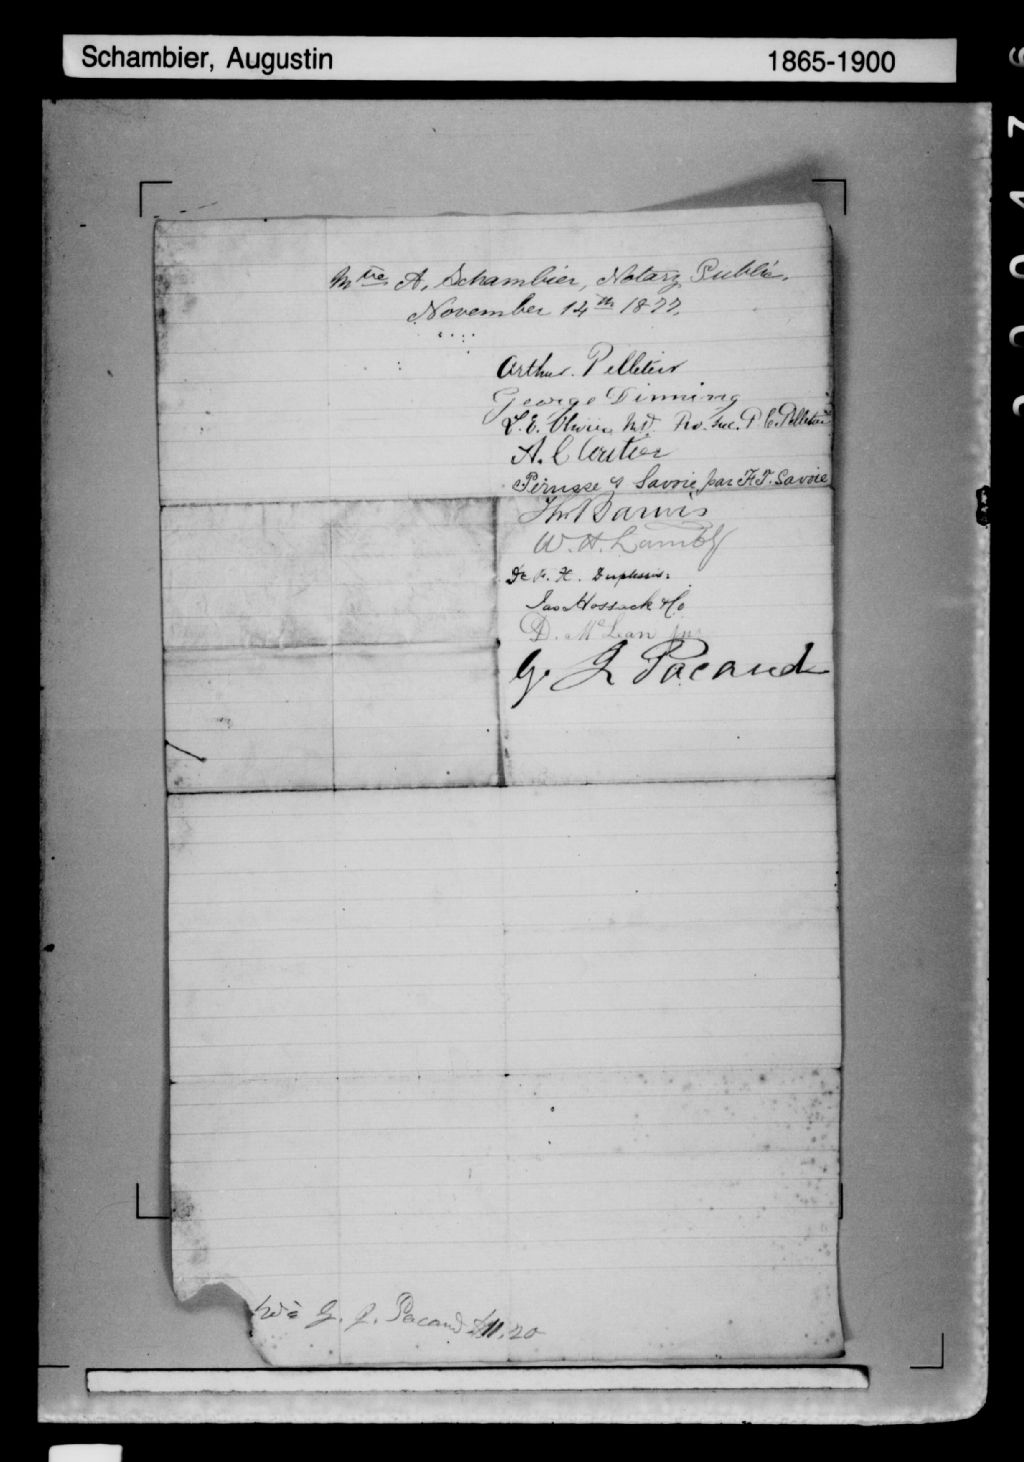 Schambier, Augustin 1865-1900
Mtre A. Schambier, Notary Public.
November 14th 1877.
Arthur Pelletier
George Dinning
L. E. Olivier M.D. P. C. Pelletier
A. Cloutier
Pérusse & Savoie par F. T. Savoie
W. H. Lambly
De F. X. Duplessis
Jas Hossack & Co
D. McLean Jnr
G. J. Pacaud
G. J. Pacaud $11.20